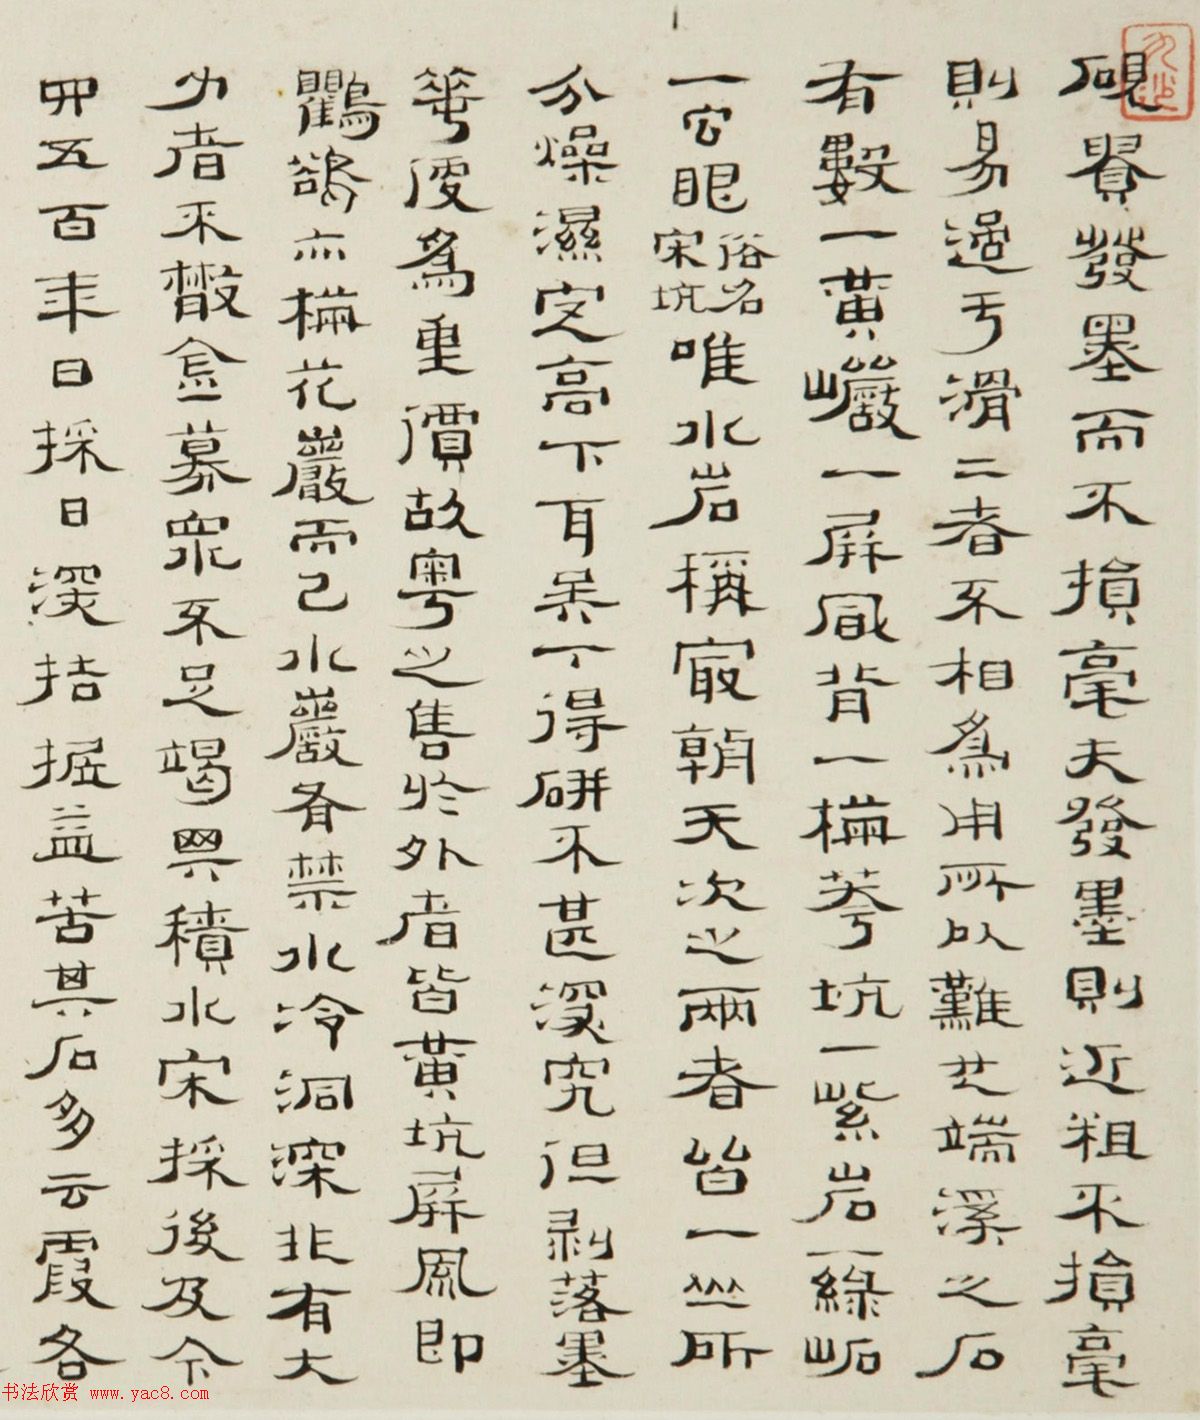 硯貴發墨而不損毫夫發墨則近粗不損毫
則易過于滑二者不相為用所以難也端溪之石
有數一黃巖一屏風背一楄萼坑一紫岩一綠
一宕眼俗名宋坑唯水岩稱最朝天次之兩者皆一山所
分燥濕定高下耳吳下得研不甚深究但剥落墨
華便為重價故粵之售於外者皆黃坑屏風即
鸜鵒亦楄花巖而已水巖者禁水冷洞深非有大
力者不敢僉募眾不足竭其積水宋採後及今
四五百年日採日深拮据益苦其石多云霞各
书法欣赏 www.yac8.com